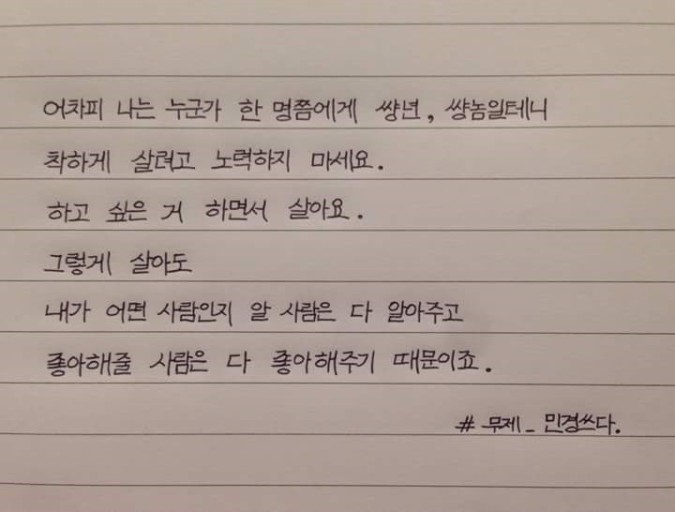 어차피 나는 누군가 한 명쯤에게 썅년, 썅놈일테니
착하게 살려고 노력하지 마세요.
하고 싶은 거 하면서 살아요.
그렇게 살아도
내가 어떤 사람인지 알 사람은 다 알아주고
좋아해줄 사람은 다 좋아해주기 때문이죠.
# 무제_ 민경쓰다.